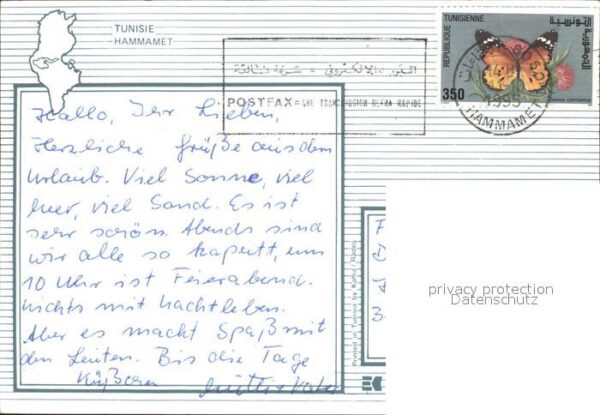 TUNISIE
HAMMAMET
REPUBLIQUE TUNISIENNE
الجمهورية التونسية
350
1995
HAMMAMET
POSTFAX = UNE TRANSMISSION ULTRA RAPIDE
Hallo, Ihr Lieben,
Herzliche Grüße aus dem
Urlaub. Viel Sonne, viel
Meer, viel Sand. Es ist
sehr schön. Abends sind
wir alle so kaputt, um
10 Uhr ist Feierabend.
Nichts mit Nachtleben.
Aber es macht Spaß mit
den Leuten. Bis die Tage
Printed in Tunisia by Kahia / Rades
privacy protection
Datenschutz